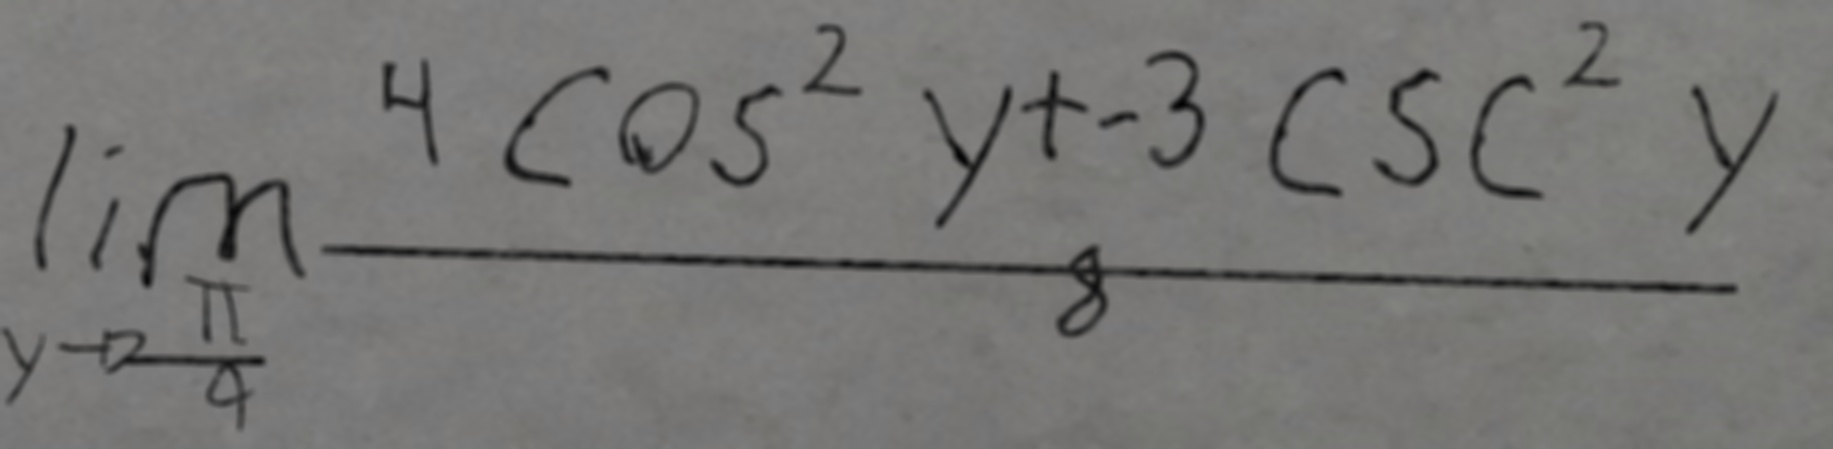 lim y→π/4 (4 cos² y + -3 csc² y)/8